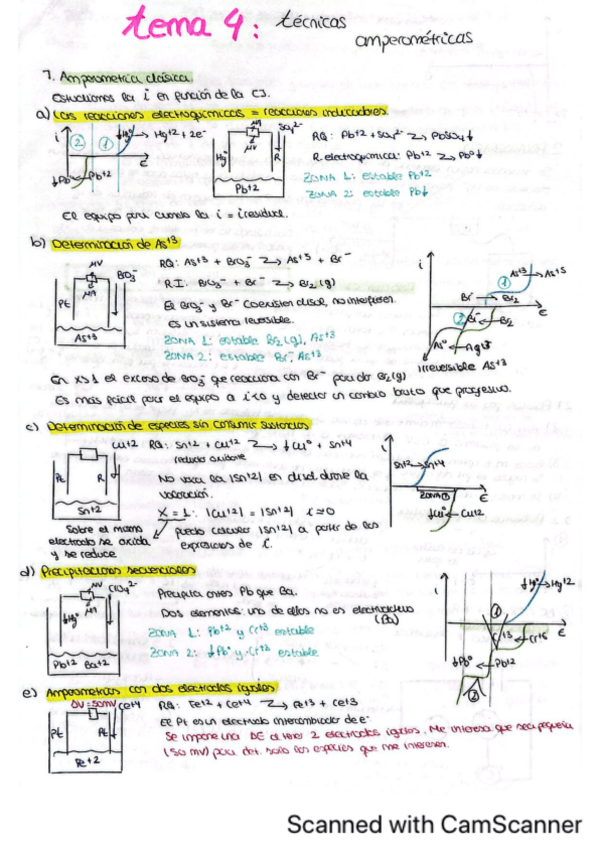 tema 4: técnicas
amperométricas
1. Amperometria clásica.
Estudiamos la i en función de la CJ.
a) Las reacciones electroquímicas = reacciones indicadores.
i ② ① ↓Hg° → Hg+2 + 2e-
E
↓Pb° ← Pb+2
μV
μA
SO4 2-
Hg° R
Pb+2
RQ: Pb+2 + SO4 2- ⇄ PbSO4↓
R. electroquímica: Pb+2 ⇄ Pb°↓
ZONA 1: estable Pb+2
ZONA 2: estable Pb↓
El equipo para cuando la i = i residual.
b) Determinación de As+3
μV
μA
BrO3-
Pt R
As+3
RQ: As+3 + BrO3- ⇄ As+5 + Br-
R.I: BrO3- + Br- ⇄ Br2 (g)
El BrO3- y Br- coexisten disol, no interfieren.
Es un sistema reversible.
ZONA 1: estable Br2 (g), As+3
ZONA 2: estable Br-, As+3
i
① As+3 → As+5
Br- → Br2
E
② Br- ← Br2
As° ← As+3
irreversible As+3
En x>1 el exceso de BrO3- que reacciona con Br- para dar Br2 (g)
Es más fácil para el equipo a i<0 y detectar un cambio bruto que progresivo.
c) Determinación de especies sin consumir sustancias
Cu+2
Pt R
Sn+2
Sobre el mismo
electrodo se oxida
y se reduce
RQ: Sn+2 + Cu+2 ⇄ ↓Cu° + Sn+4
reductor oxidante
No varía la |Sn+2| en disol durante la
valoración.
X = 1: |Cu+2| = |Sn+2| i≈0
puedo calcular |Sn+2| a partir de las
expresiones de i.
i
Sn+2 → Sn+4
ZONA ① E
↓Cu° ← Cu+2
d) Precipitaciones secuenciales
μV CrO4 2-
μA
↓Hg° R
Pb+2 Ba+2
Precipita antes Pb que Ba.
Dos elementos: uno de ellos no es electroactivo
(Ba)
ZONA 1: Pb+2 y Cr+3 estable
ZONA 2: ↓Pb° y Cr+3 estable
i
↓Hg° → Hg+2
①
Cr+3 ← Cr+6 E
↓Pb° ← Pb+2
②
e) Amperometrías con dos electrodos iguales
ΔV = 50mV Ce+4
Pt Pt
Fe+2
RQ: Fe+2 + Ce+4 ⇄ Fe+3 + Ce+3
El Pt es un electrodo intercambiador de e-
Se impone una ΔE al tener 2 electrodos iguales. Me interesa que sea pequeña
(50 mV) para det. solo las especies que me interesen.
Scanned with CamScanner